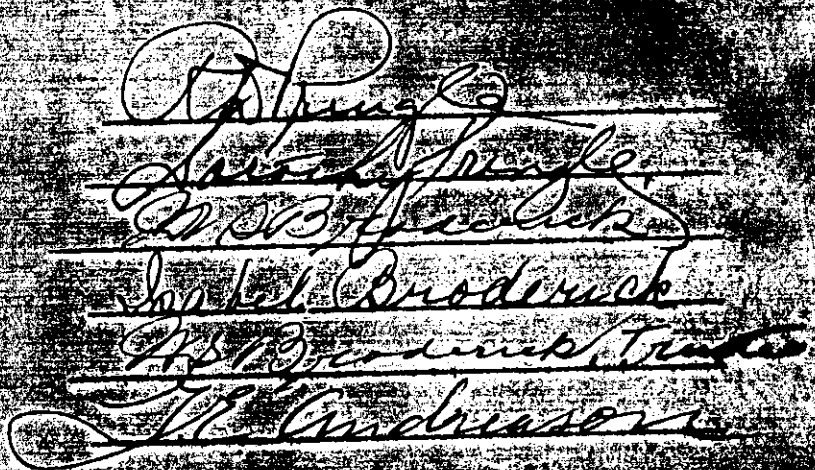 Pringle
Dorothy Pringle
W S Broderick
Isabel Broderick
W S Broderick, Trustee
T.E. Andreason